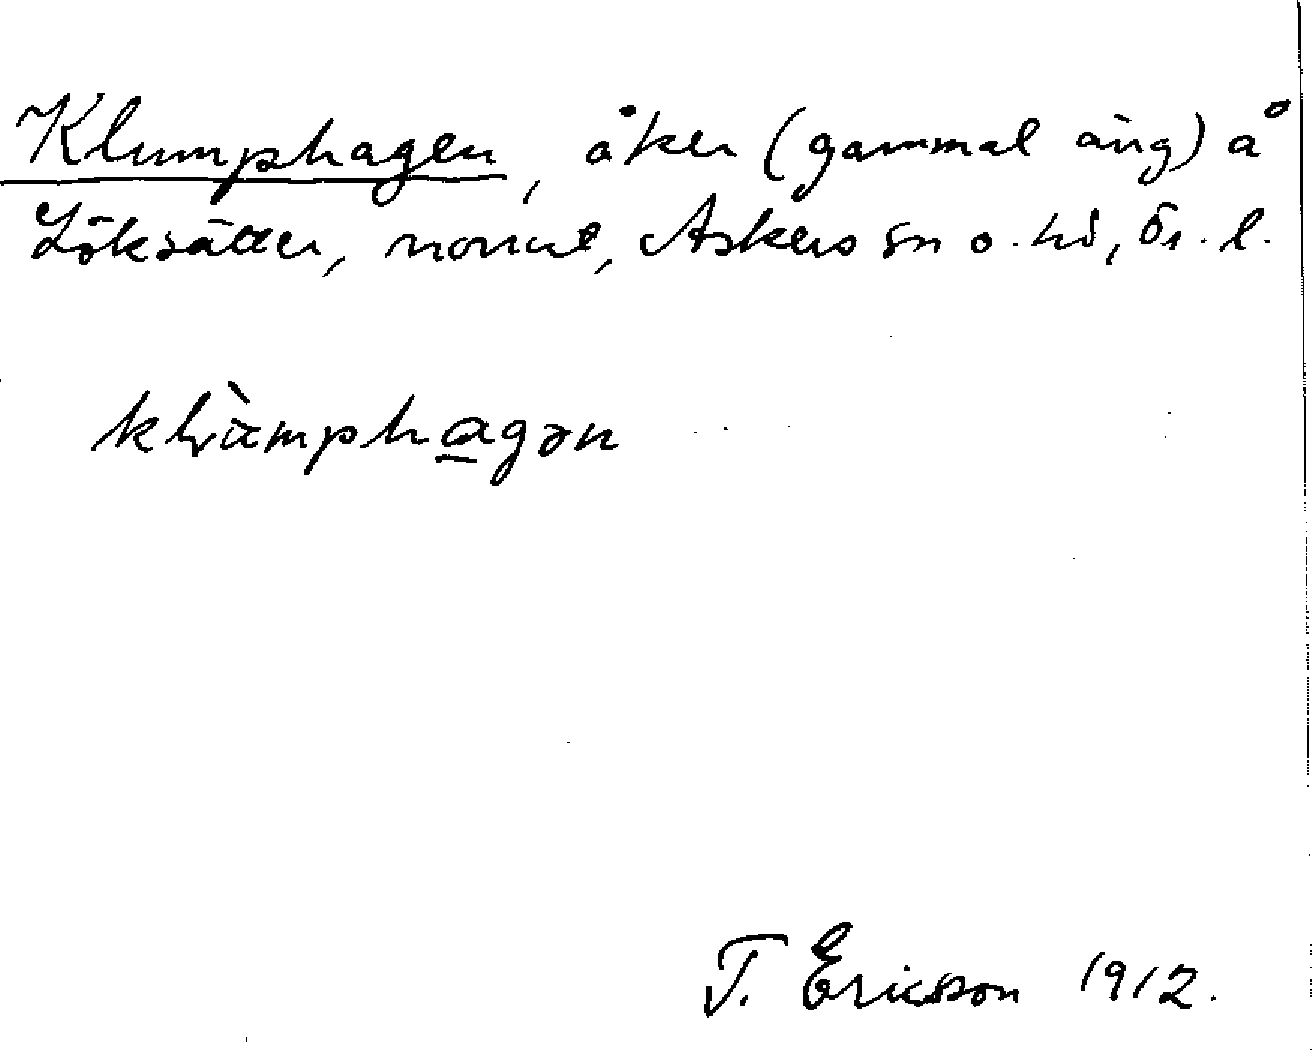 Klumphagen, åker (gammal äng) å
Löksätter, norra, Askers sn o. hd, Ör. l.
klùmphagən
T. Ericsson 1912.